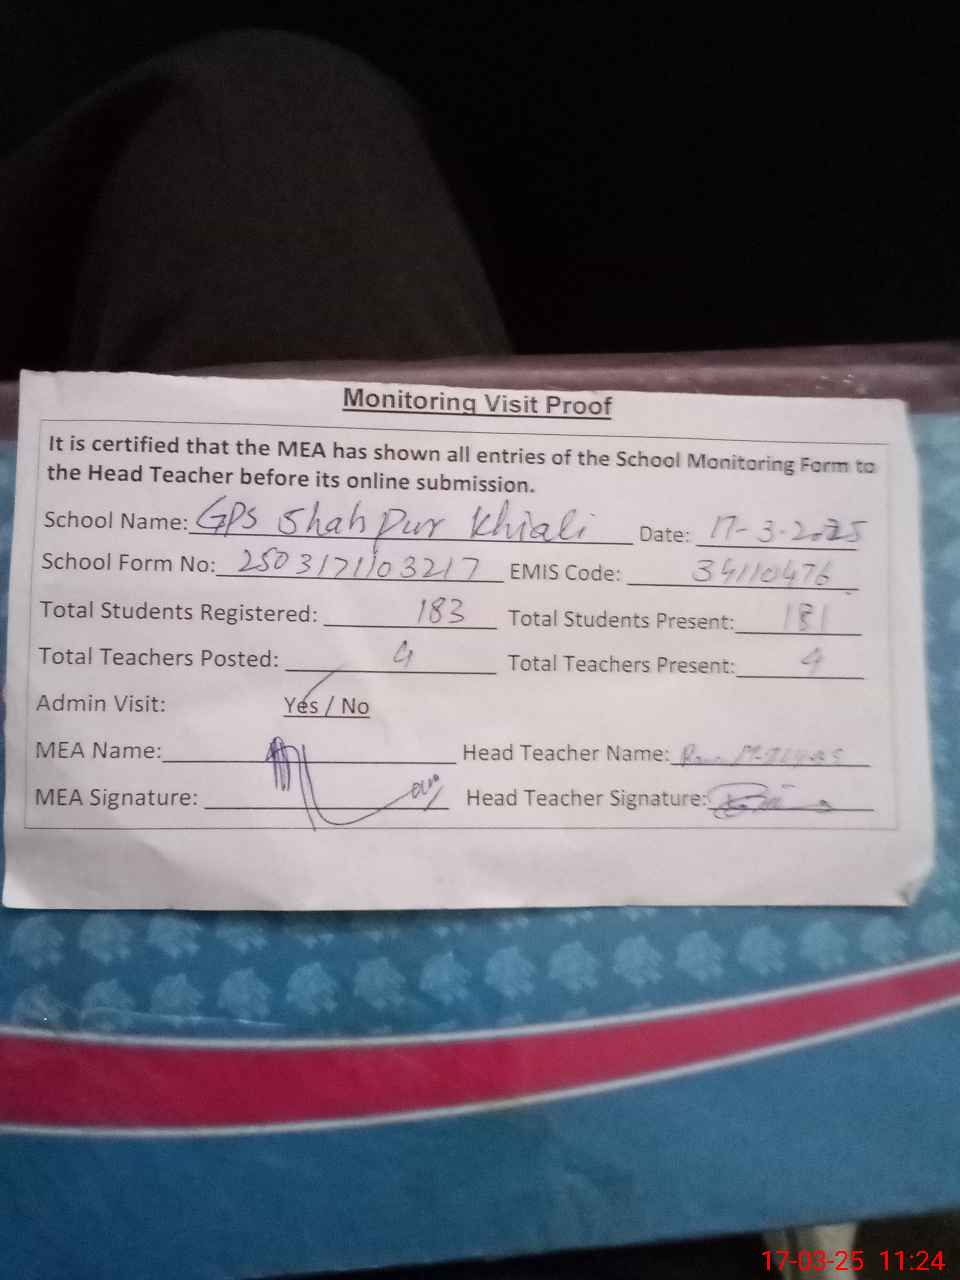 Monitoring Visit Proof
It is certified that the MEA has shown all entries of the School Monitoring Form to
the Head Teacher before its online submission.
School Name: GPS Shahpur Khiali Date: 17-3-2025
School Form No: 2503171103217 EMIS Code: 34110476
Total Students Registered: 183 Total Students Present: 181
Total Teachers Posted: 4 Total Teachers Present: 4
Admin Visit: Yes / No
MEA Name: Head Teacher Name:
MEA Signature: Head Teacher Signature:
17-03-25 11:24